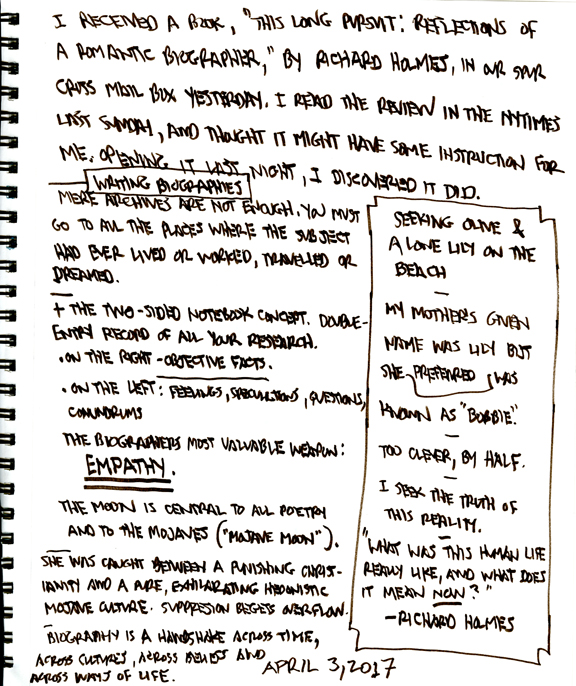 I RECEIVED A BOOK, "THIS LONG PURSUIT: REFLECTIONS OF
A ROMANTIC BIOGRAPHER," BY RICHARD HOLMES, IN OUR SPUR
CROSS MAIL BOX YESTERDAY. I READ THE REVIEW IN THE NYTIMES
LAST SUNDAY, AND THOUGHT IT MIGHT HAVE SOME INSTRUCTION FOR
ME. OPENING IT LAST NIGHT, I DISCOVERED IT DID.
WRITING BIOGRAPHIES
MERE ARCHIVES ARE NOT ENOUGH. YOU MUST
GO TO ALL THE PLACES WHERE THE SUBJECT
HAD EVER LIVED OR WORKED, TRAVELLED OR
DREAMED.
+ THE TWO-SIDED NOTEBOOK CONCEPT. DOUBLE-
ENTRY RECORD OF ALL YOUR RESEARCH.
• ON THE RIGHT - OBJECTIVE FACTS.
• ON THE LEFT: FEELINGS, SPECULATIONS, QUESTIONS,
CONUNDRUMS
THE BIOGRAPHERS MOST VALUABLE WEAPON:
EMPATHY.
THE MOON IS CENTRAL TO ALL POETRY
AND TO THE MOJAVES ("MOJAVE MOON").
SHE WAS CAUGHT BETWEEN A PUNISHING CHRIST-
IANITY AND A PURE, EXHILARATING HEDONISTIC
MOJAVE CULTURE. SUPPRESION BEGETS OVERFLOW.
BIOGRAPHY IS A HANDSHAKE ACROSS TIME,
ACROSS CULTURES, ACROSS BELIEFS AND
ACROSS WAYS OF LIFE.
SEEKING OLIVE &
A LONE LILY ON THE
BEACH
MY MOTHER'S GIVEN
NAME WAS LILY BUT
SHE PREFERRED WAS
KNOWN AS "BOBBIE."
TOO CLEVER, BY HALF.
I SEEK THE TRUTH OF
THIS REALITY.
"WHAT WAS THIS HUMAN LIFE
REALLY LIKE, AND WHAT DOES
IT MEAN NOW?"
-RICHARD HOLMES
APRIL 3, 2017